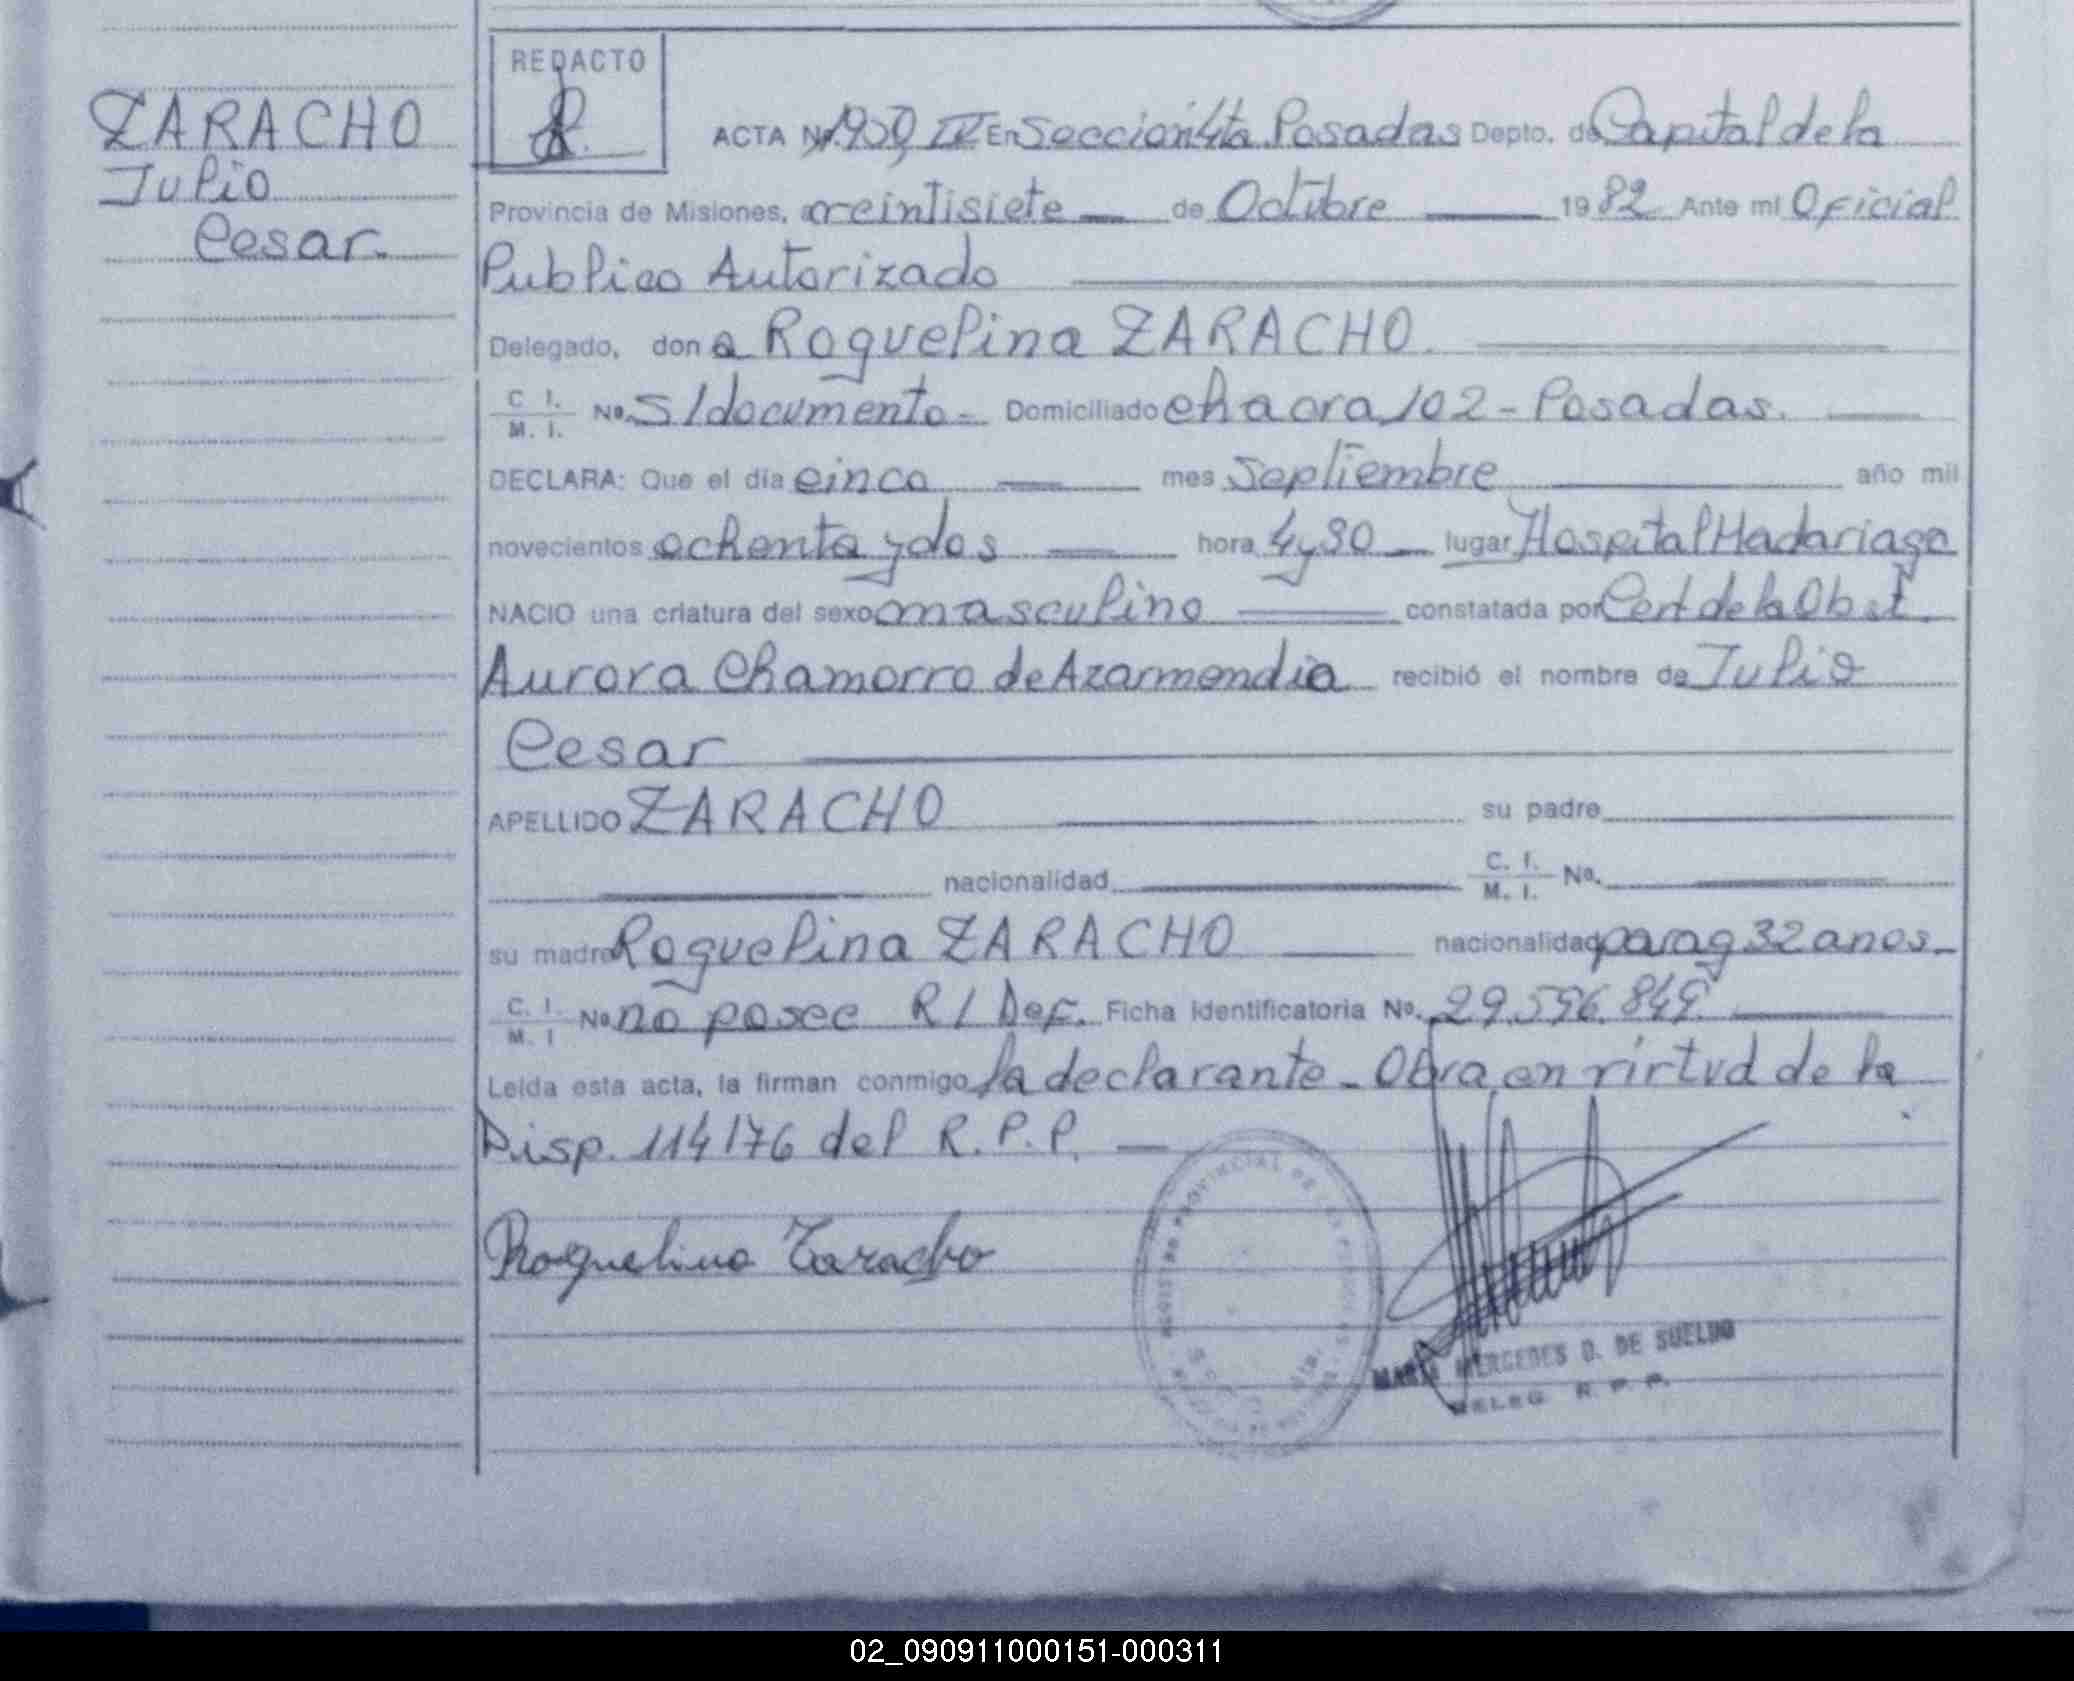 ZARACHO
Julio
Cesar.
REDACTO
ACTA Nº 1950, IV En Seccion 4ta Posadas Depto. de Capital de la
Provincia de Misiones, a veintisiete de Octubre 1982 Ante mi Oficial
Publico Autorizado
Delegado, don a Roquelina ZARACHO.
C I. / M. I. Nº. S/documento - Domiciliado Chacra 102 - Posadas.
DECLARA: Que el día cinco mes Septiembre año mil
novecientos ochenta y dos hora 4 y 30 lugar Hospital Madariaga
NACIO una criatura del sexo masculino constatada por Cert de la Obst.
Aurora Chamorro de Azarmendia recibió el nombre de Julio
Cesar
APELLIDO ZARACHO su padre
nacionalidad C. I. / M. I. Nº.
su madre Roquelina ZARACHO nacionalidad parag 32 anos.
C. I. / M. I Nº no posee R/Def. Ficha identificatoria Nº. 29.596.849
Leida esta acta, la firman conmigo la declarante - Obra en virtud de la
Disp. 114/76 del R.P.P.
Roquelina Zaracho
MARIA MERCEDES D. DE SUELDO
DELEG. R. P. P.
02_090911000151-000311